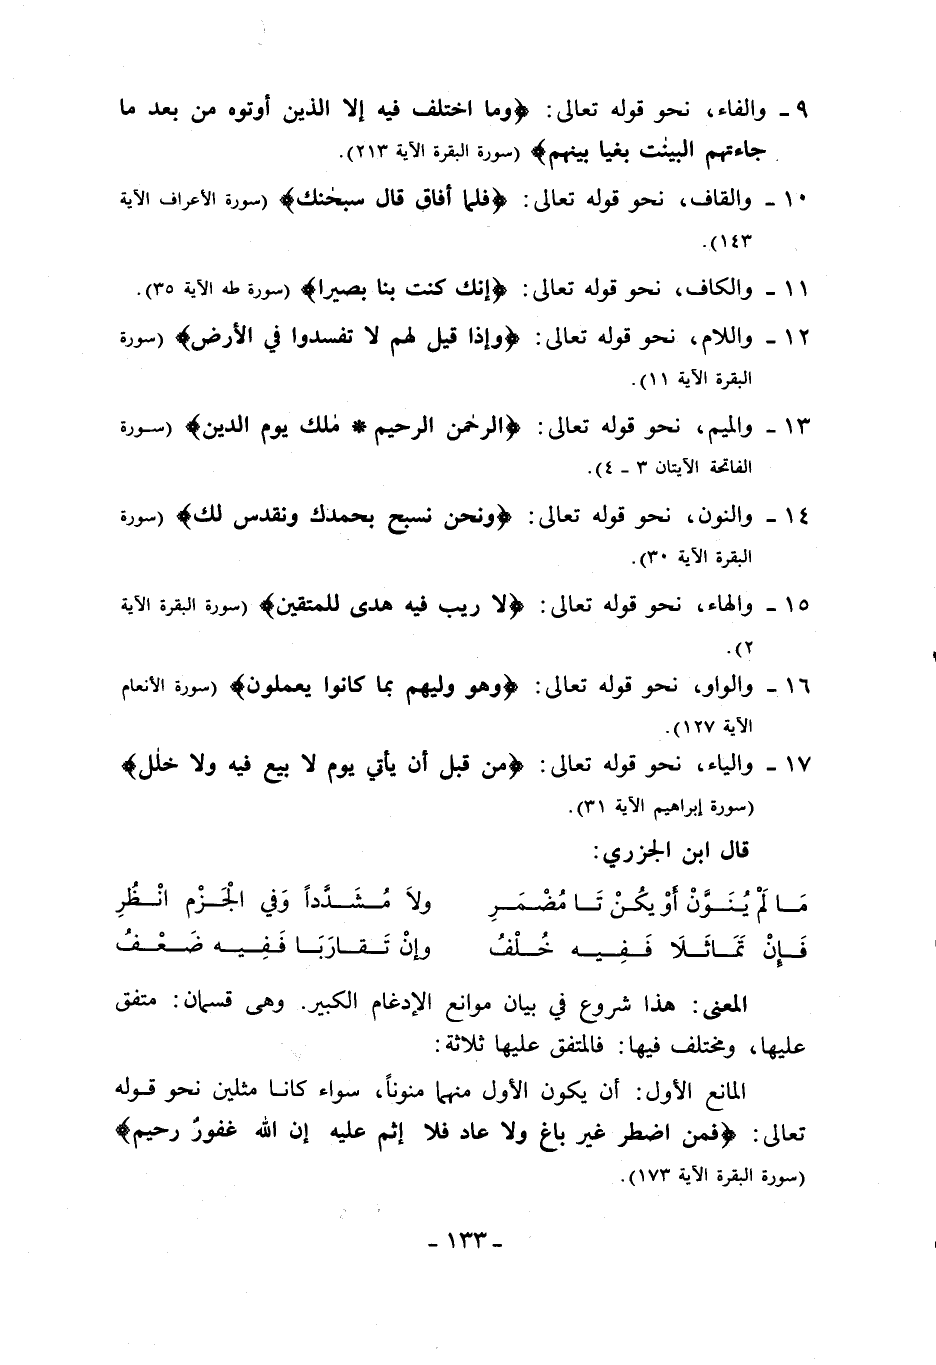 ٩ ـ والفاء، نحو قوله تعالى: ﴿وما اختلف فيه إلا الذين أوتوه من بعد ما
جاءتهم البينٰت بغيا بينهم﴾ (سورة البقرة الآية ٢١٣).
١٠ ـ والقاف، نحو قوله تعالى: ﴿فلما أفاق قال سبحٰنك﴾ (سورة الأعراف الآية
١٤٣).
١١ ـ والكاف، نحو قوله تعالى: ﴿إنك كنت بنا بصيرا﴾ (سورة طه الآية ٣٥).
١٢ ـ واللام، نحو قوله تعالى: ﴿وإذا قيل لهم لا تفسدوا في الأرض﴾ (سورة
البقرة الآية ١١).
١٣ ـ والميم، نحو قوله تعالى: ﴿الرحمٰن الرحيم * مٰلك يوم الدين﴾ (سورة
الفاتحة الآيتان ٣ ـ ٤).
١٤ ـ والنون، نحو قوله تعالى: ﴿ونحن نسبح بحمدك ونقدس لك﴾ (سورة
البقرة الآية ٣٠).
١٥ ـ والهاء، نحو قوله تعالى: ﴿لا ريب فيه هدى للمتقين﴾ (سورة البقرة الآية
٢).
١٦ ـ والواو، نحو قوله تعالى: ﴿وهو وليهم بما كانوا يعملون﴾ (سورة الأنعام
الآية ١٢٧).
١٧ ـ والياء، نحو قوله تعالى: ﴿من قبل أن يأتي يوم لا بيع فيه ولا خلٰل﴾
(سورة إبراهيم الآية ٣١).
قال ابن الجزري:
مَـا لَمْ يُنَـوَّنْ أَوْ يكُـنْ تَـا مُضْمَـرِ ولاَ مُـشَـدَّداً وَفي الْجَـزْمِ انْـظُرِ
فَـإِنْ تَمَـاثَـلَا فَـفِيـه خُـلْفُ وإنْ تَـقـارَبَـا فَـفِيـه ضَـعْـفُ
المعنى: هذا شروع في بيان موانع الإدغام الكبير. وهى قسمان: متفق
عليها، ومختلف فيها: فالمتفق عليها ثلاثة:
المانع الأول: أن يكون الأول منهما منوناً، سواء كانا مثلين نحو قوله
تعالى: ﴿فمن اضطر غير باغ ولا عاد فلا إثم عليه إن الله غفورٌ رحيم﴾
(سورة البقرة الآية ١٧٣).
ـ ١٣٣ ـ